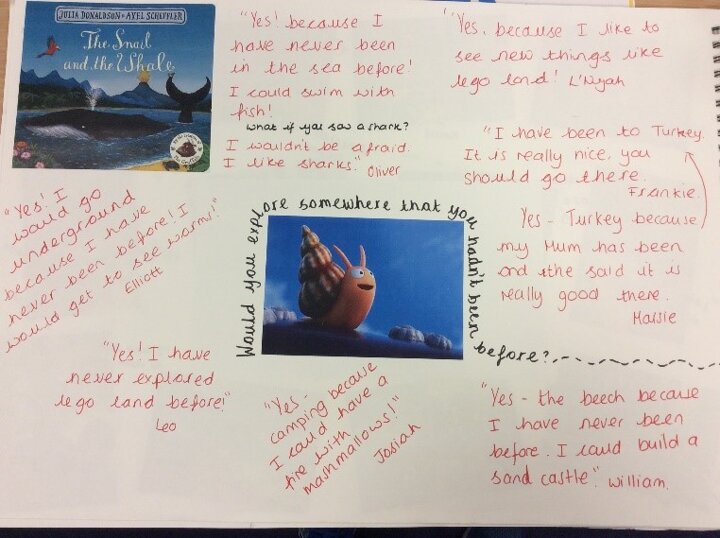 JULIA DONALDSON • AXEL SCHEFFLER
The Snail
and the Whale
"Yes! because I
have never been
in the sea before!
I could swim with
fish!
What if you saw a shark?
I wouldn't be afraid.
I like sharks." Oliver
"Yes, because I like to
see new things like
lego land! L'Nyah
"I have been to Turkey.
It is really nice, you
should go there.
Frankie.
Yes - Turkey because
my Mum has been
and sthe said it is
really good there.
Maisie
"Yes! I
would go
underground
because I have
never been before! I
would get to see worms!"
Elliott
Would you explore somewhere that you hadn't been before?
"Yes! I have
never explored
lego land before!"
Leo
"Yes -
camping because
I could have a
fire with
mashmallows!"
Josiah
"Yes - the beech because
I have never been
before. I could build a
sand castle". William.